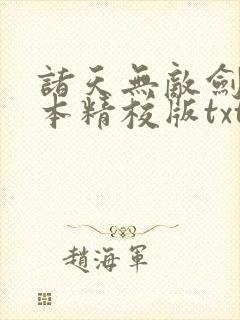 諸天無敵劍
本精校版txt
趙海軍